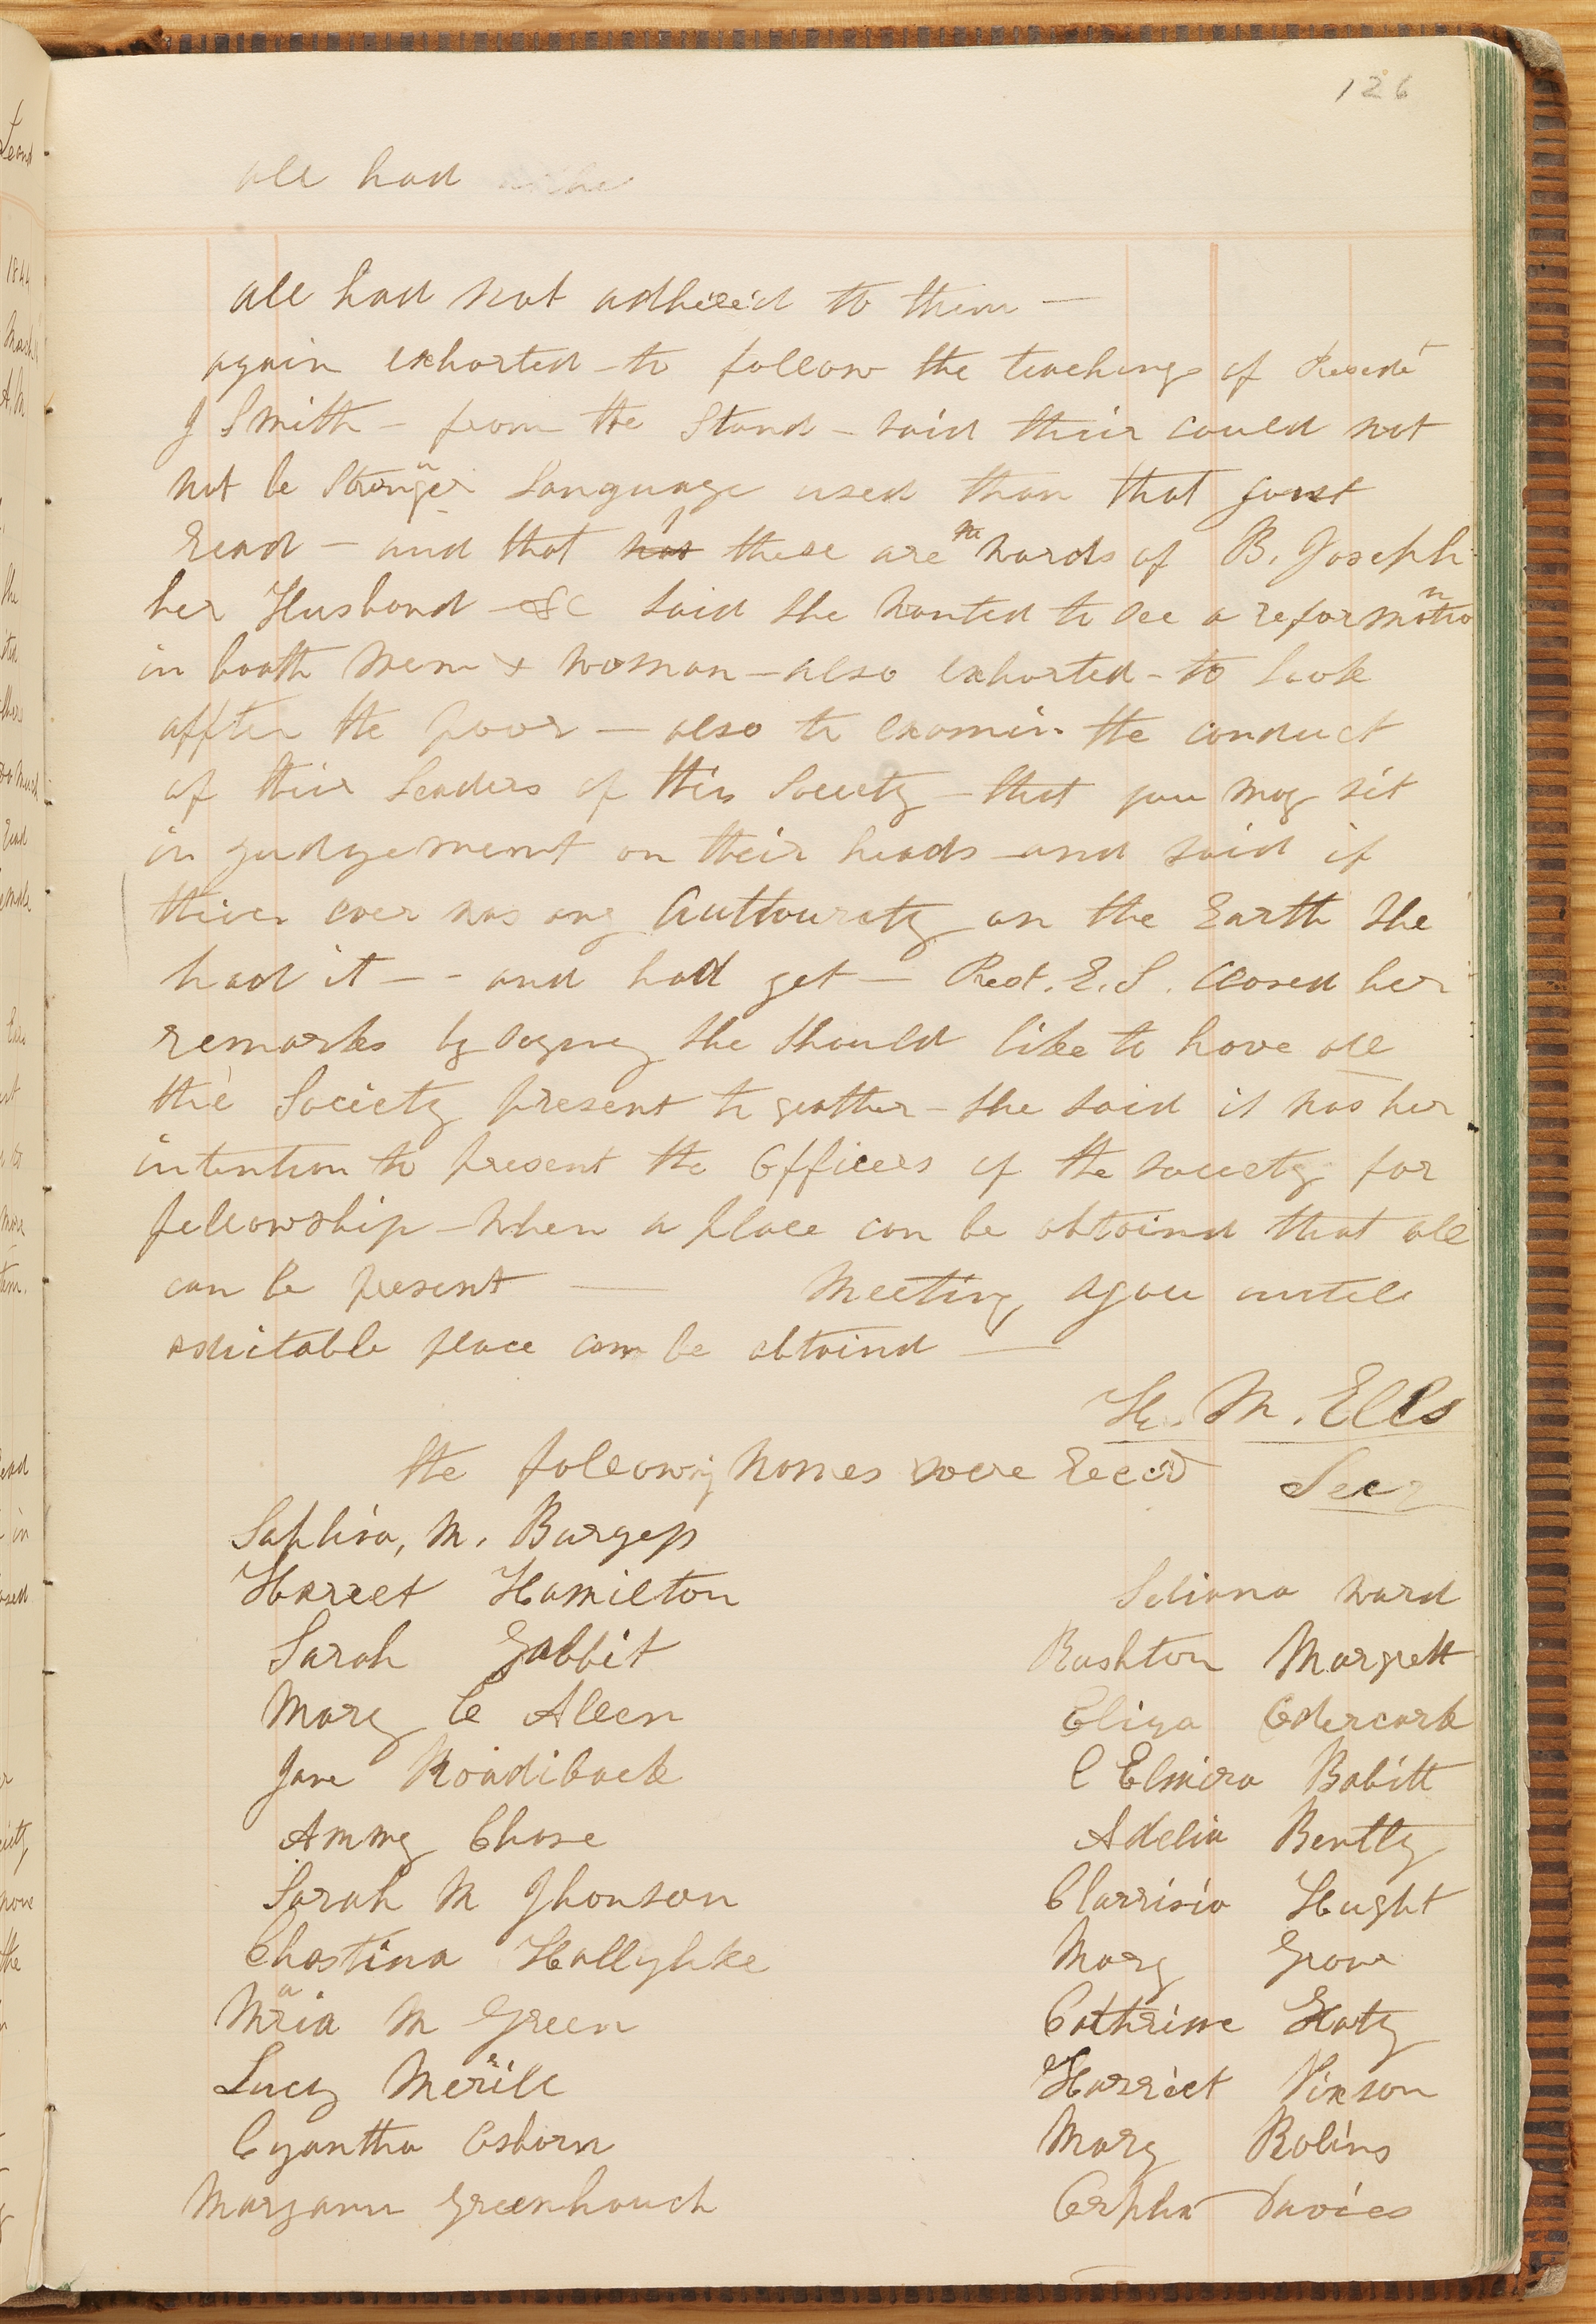 126
all had
all had not adhered to them —
again exhorted - to follow the teachings of Presedt
J Smith - from the Stand - said their could not
not be Stronger Language used than that just
Read - and that was these are the words of B. Joseph
her Husband - &C said she wanted to see a reformation
in booth men & woman - also exhorted - to Look
affter the poor — also to examin the conduct
of their Leaders of this Society - that you may sit
in judgement on their heads - and said if
thier ever was any Authourety on the Earth She
had it - - and had yet — Prest. E. S. closed her
remarks by sayny she should like to have all
the Society present to geather - she said it was her
intention to present the Officers of the society for
fellowship - when a place can be obtaind that all
can be present — Meeting, agou untill
asuitable place can be obtaind —
H. M. Ells
the following names were Recd Secr
Saphira, M. Burgess
Harreet Hamilton Seliana ward
Sarah Gabbit Rushton Margrett
Mary C Allen Eliza Odercark
Jane Roadiback C Elmira Babitt
Ammy Chase Adelia Bently
Sarah M Jhonson Clarrisia Hught
Chastina Hallylike Mary Grow
Maria M Green Cathrine Katy
Lucy Merrill Harriet Vinson
Cyantha Osborn Mary Robins
Maryann Greenhouch Orpha Davies